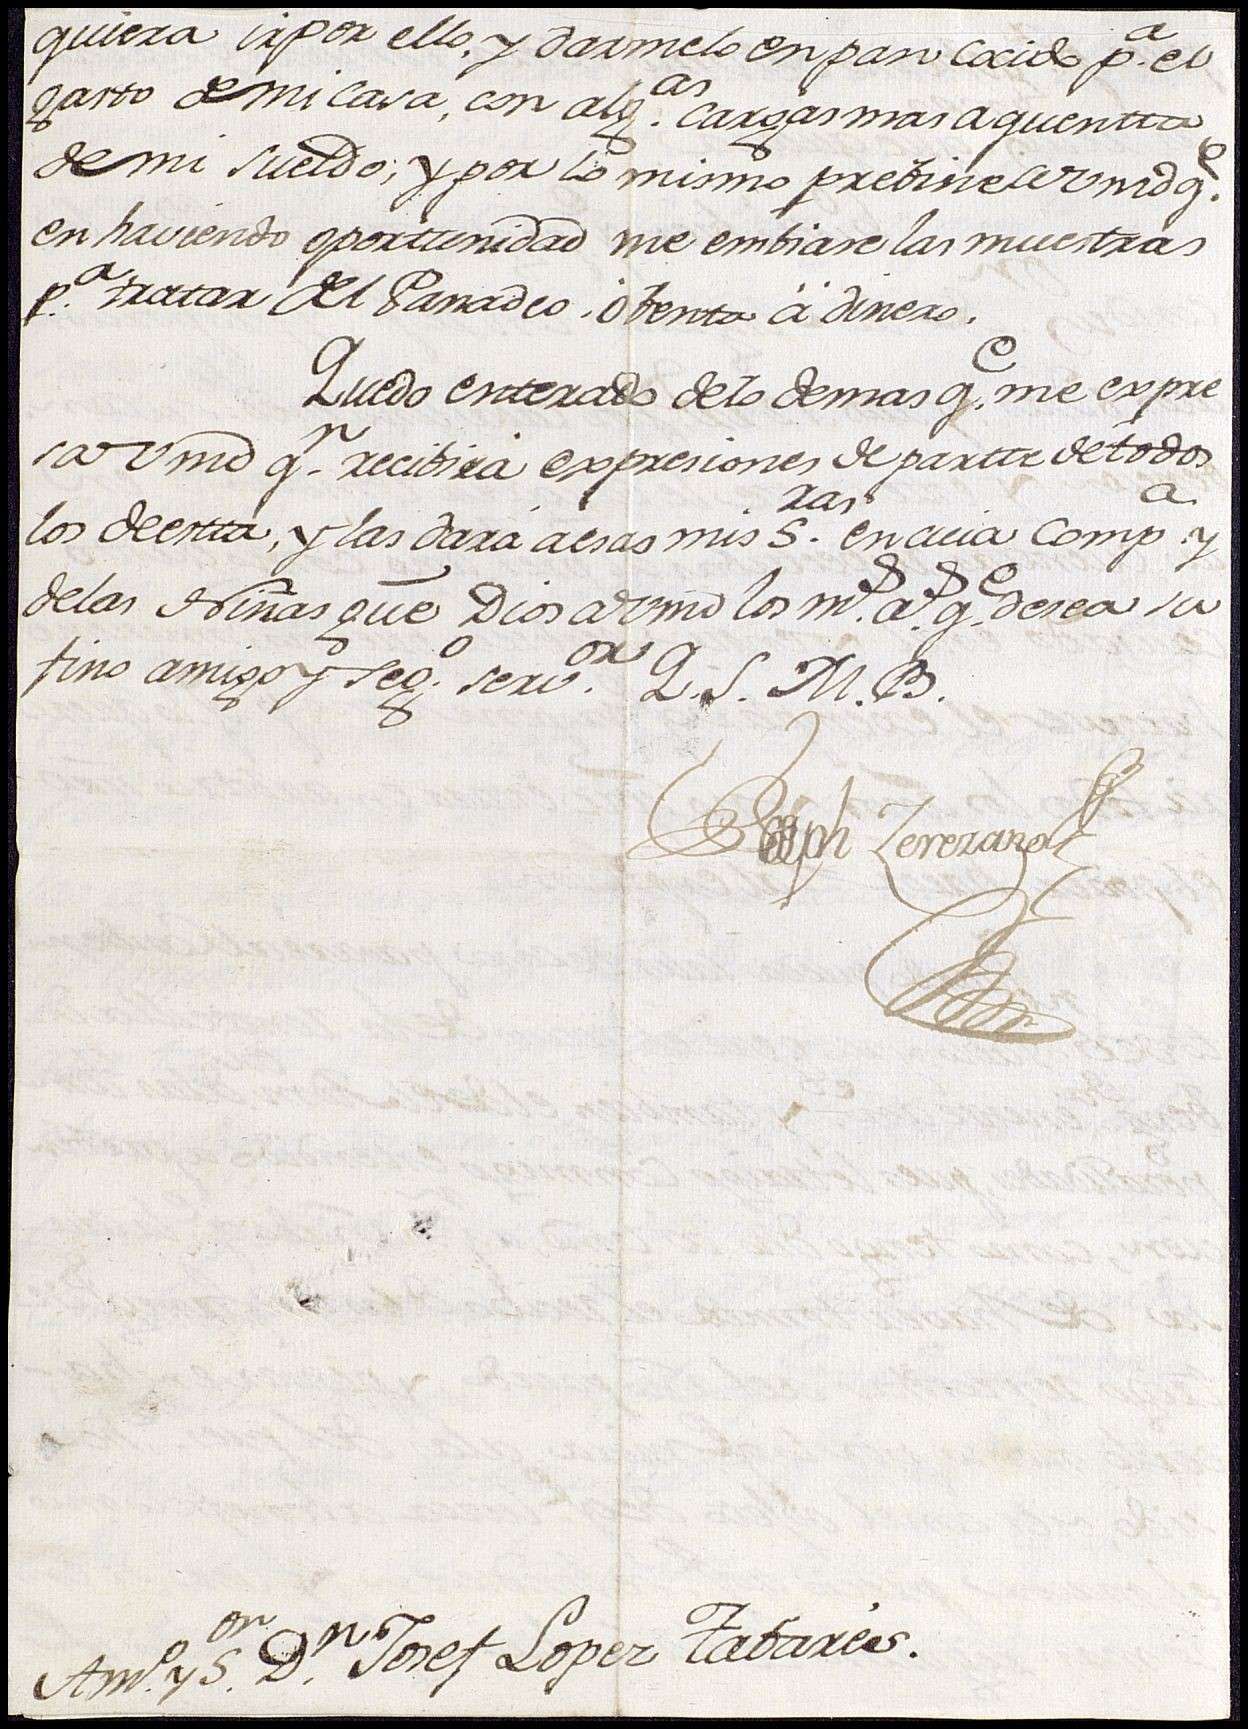 quiera ir por ello, y darmelo en pan Cocido p.ª el
gasto de mi casa, con alg.as cargas mas a quentta
de mi sueldo; y por lo mismo prebine a Vmd q.e
en haviendo oporttunidad me embiase las muestras
p.a tratar del Panadeo, ó benta á dinero.
Quedo enterado de lo demas q.e me expre
sa Vmd q.n recibirá expresiones de partte de todos
los de estta, y las dará a esas mis S.ras en cuia Comp.a y
de las Niñas que Dios a Vmd los m.s a.s q.e desea su
fino amigo y seg.o serv.or Q. S. M. B.
Joseph Zerezano
Am.o y S.or D.n Josef Lopez Tabares.